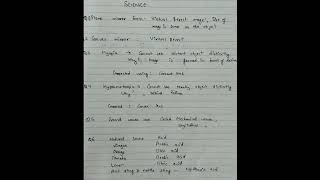 SCIENCE
Q1 Plane mirror forms - Virtual Erect image, Size of
image is same as the object
2 Convex mirror : Virtual Erect
Q3 Myopia → Cannot see distant object distinctly
Why? : Image is formed in front of Retina
Corrected using : Concave lens
Q4 Hypermetropia → Cannot see nearby object distinctly
Why? , behind Retina
Corrected : Convex lens
Q5 Sound waves are Called Mechanical waves,
longitudinal
Q6 Natural Source Acid
Vinegar Acetic acid
Orange Citric acid
Tomato Oxalic acid
Lemon Citric acid
Ant sting & nettle sting - Methanoic acid